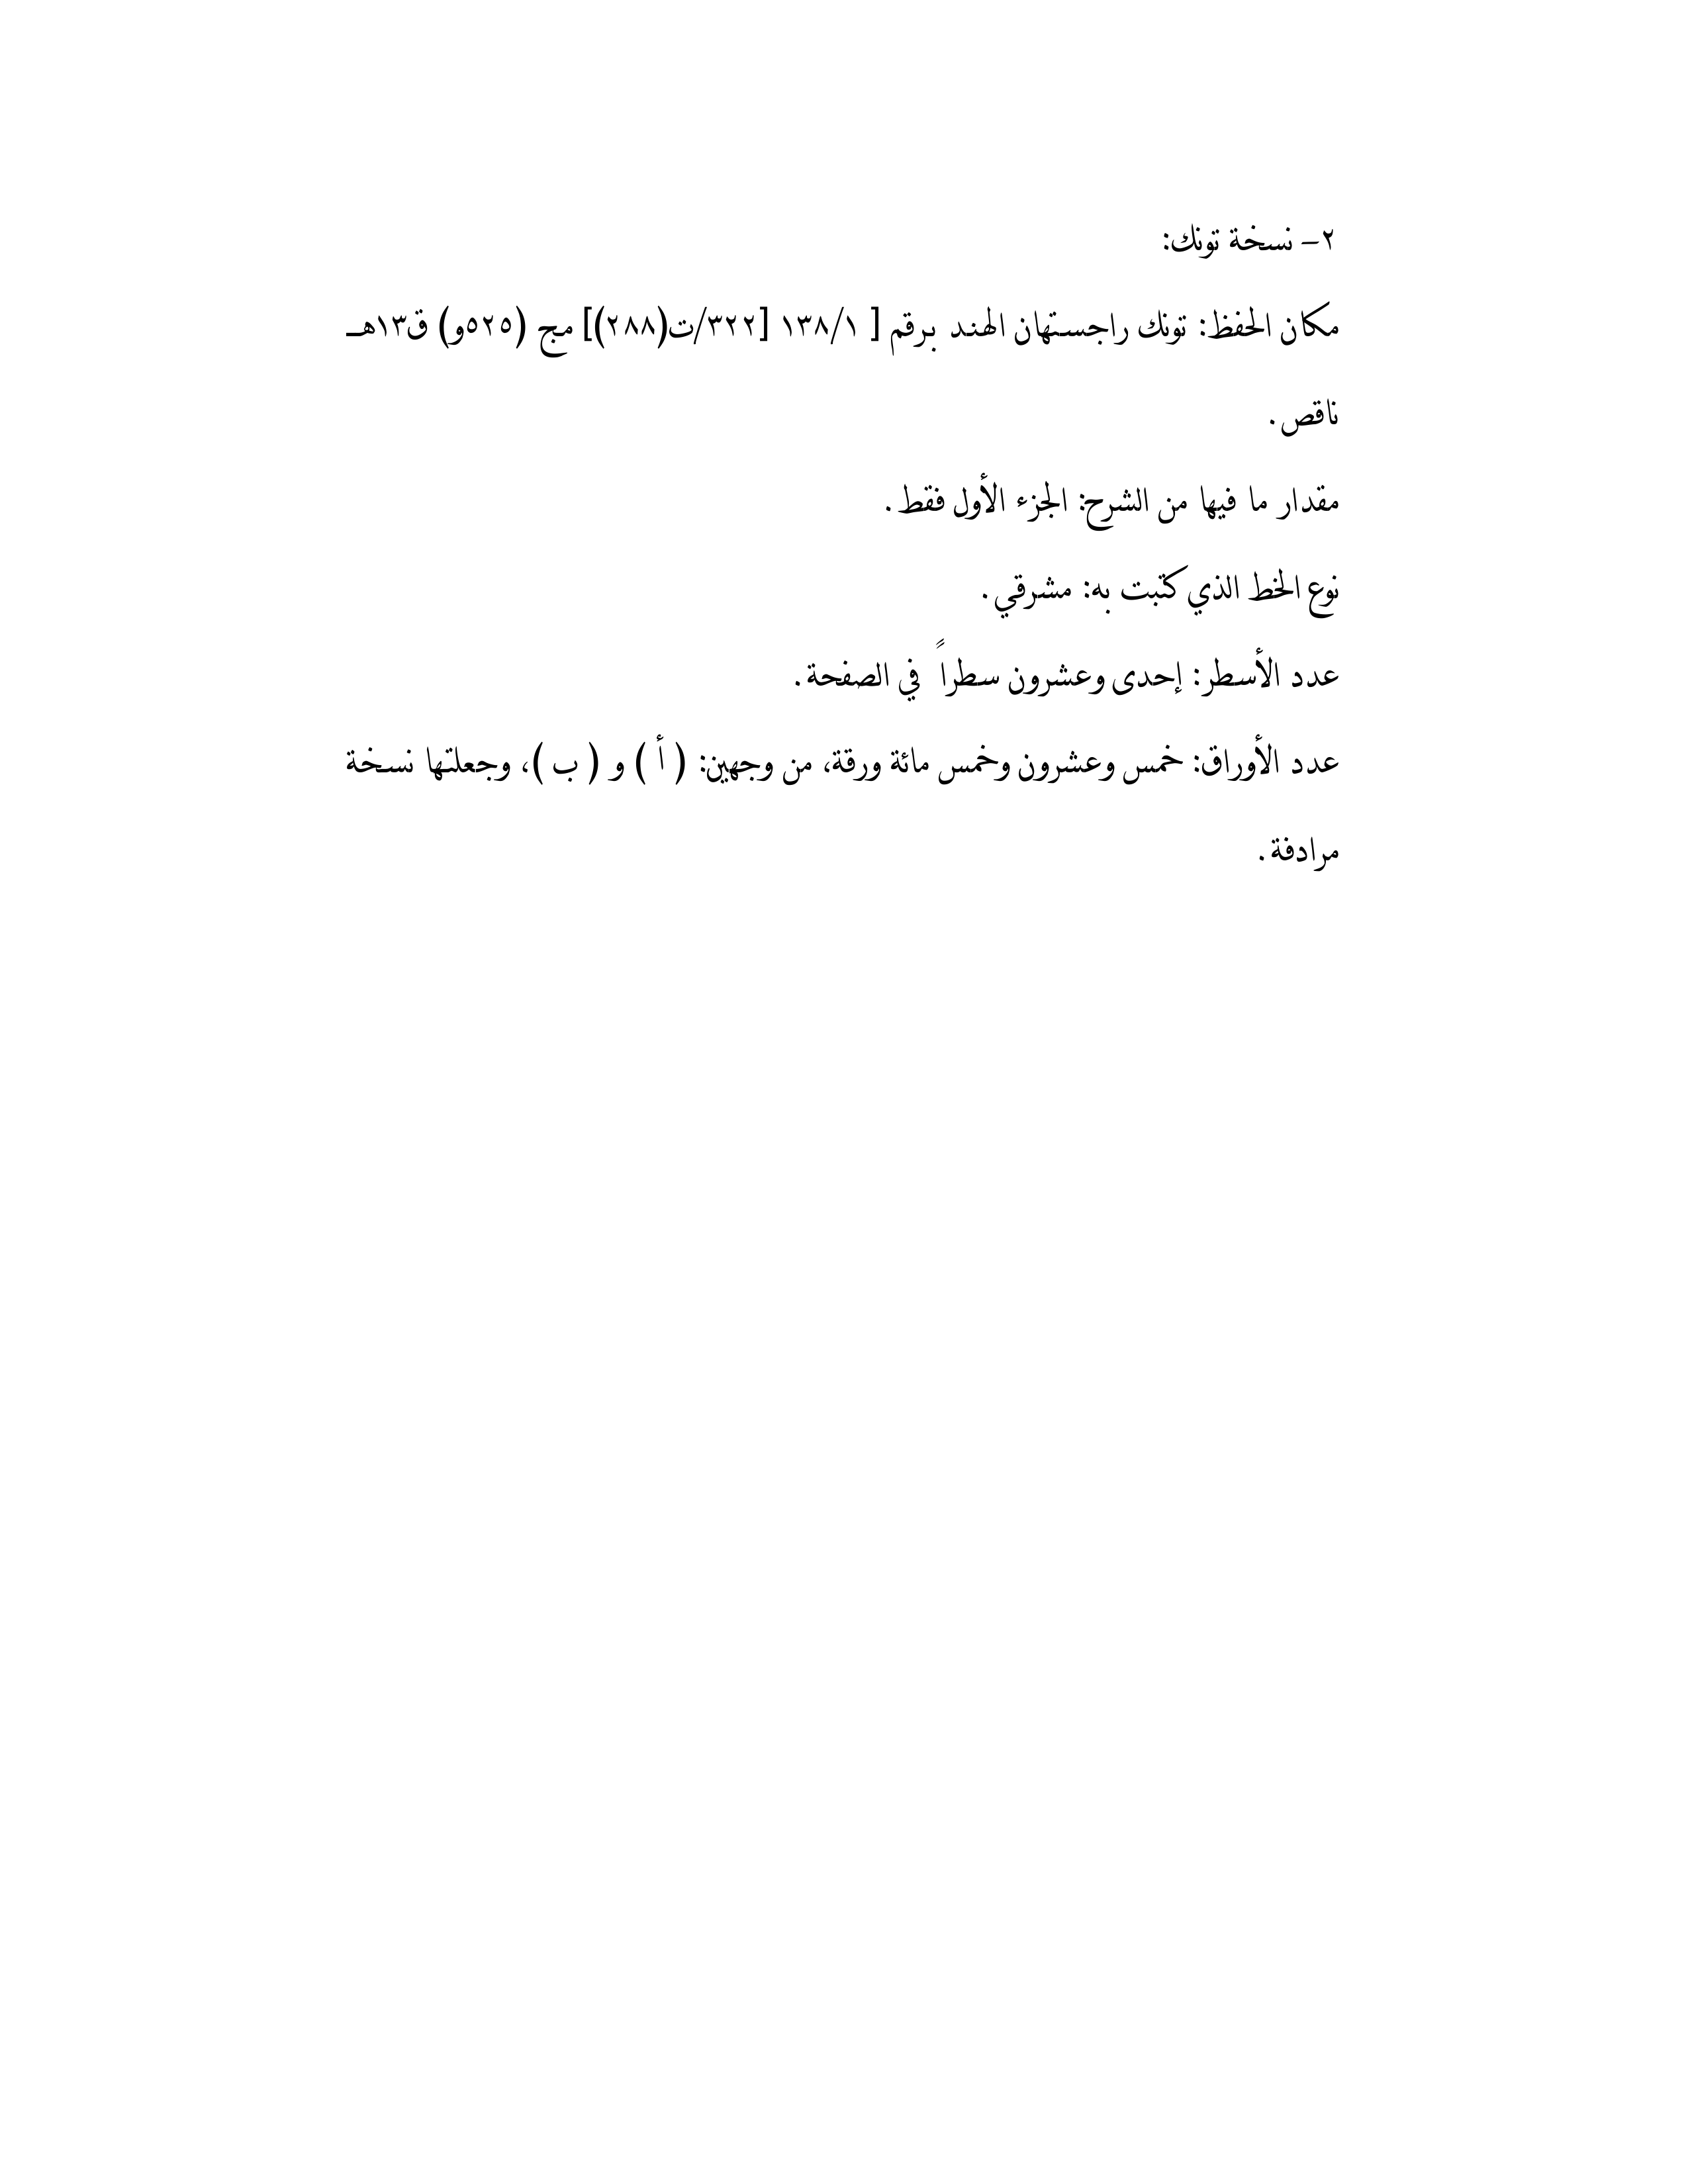 ٢- نسخة تونك:
مكان الحفظ: تونك راجستهان الهند برقم [ ١٣٨/١ [٣٢٢/ت(٢٨٨)] مج (٥٢٥و) ق١٣هـ
ناقص.
مقدار ما فيها من الشرح: الجزء الأول فقط.
نوع الخط الذي كتبت به: مشرقي.
عدد الأسطر: إحدى وعشرون سطراً في الصفحة.
عدد الأوراق: خمس وعشرون وخمس مائة ورقة، من وجهين: ( أ ) و ( ب )، وجعلتها نسخة
مرادفة.